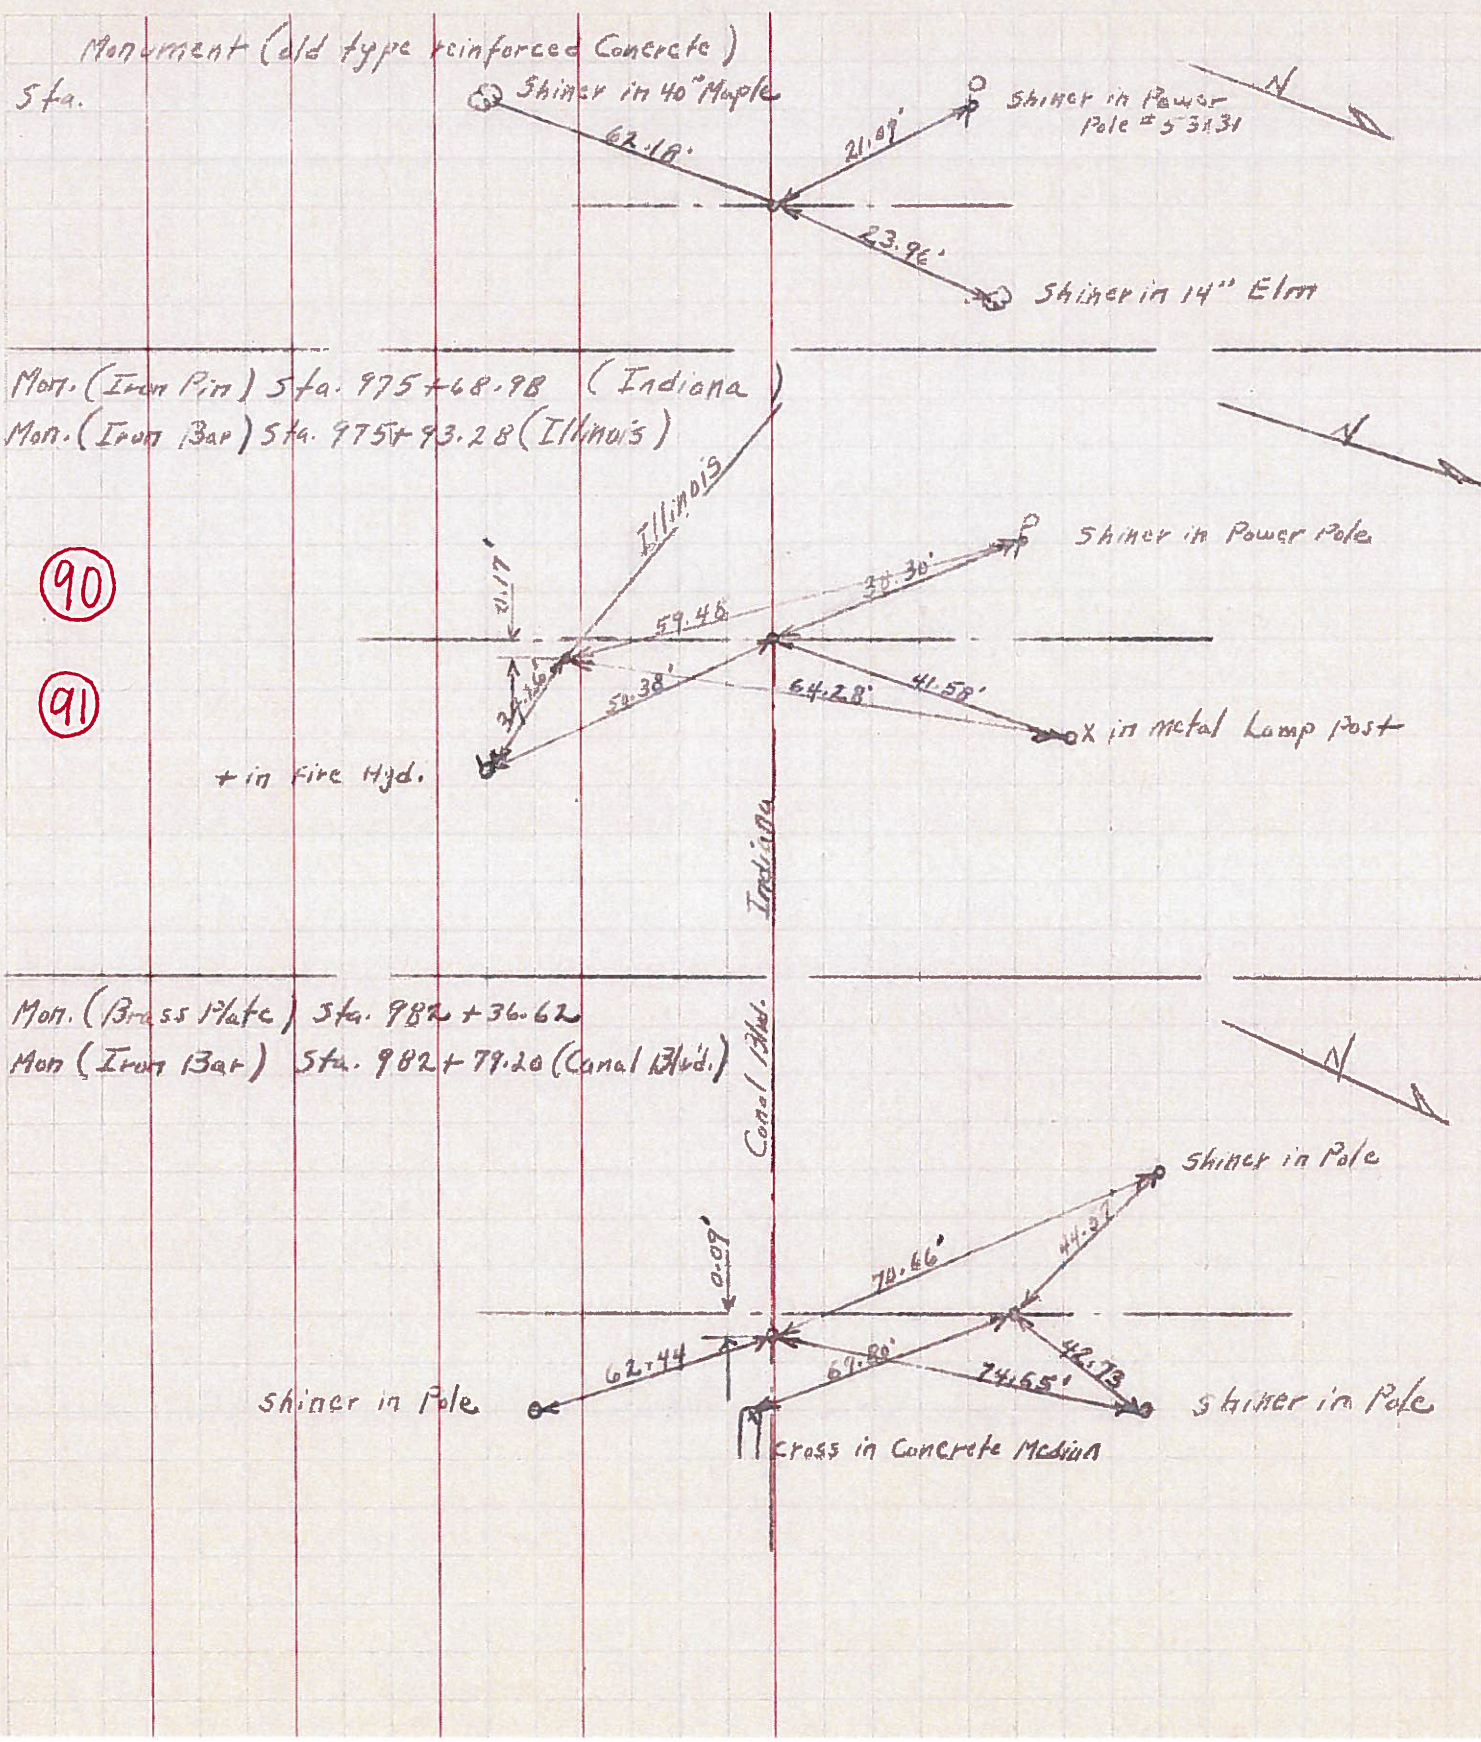 Monument (old type reinforced Concrete)
Sta.
Shiner in 40" Maple
Shiner in Power
Pole # 53131
N
62.18'
21.09'
23.96'
Shiner in 14" Elm
Mon. (Iron Pin) Sta. 975+68.98 (Indiana)
Mon. (Iron Bar) Sta. 975+93.28 (Illinois)
N
Illinois
90
0.17'
Shiner in Power Pole
38.30'
59.46
91
50.38'
64.28'
41.58'
X in Metal Lamp Post
+ in Fire Hyd.
Indiana
Mon. (Brass Plate) Sta. 982+36.62
Mon (Iron Bar) Sta. 982+79.20 (Canal Blvd.)
Canal Blvd.
N
Shiner in Pole
0.09'
70.66'
62.44
69.80'
74.65'
42.73
Shiner in Pole
Shiner in Pole
Cross in Concrete Median